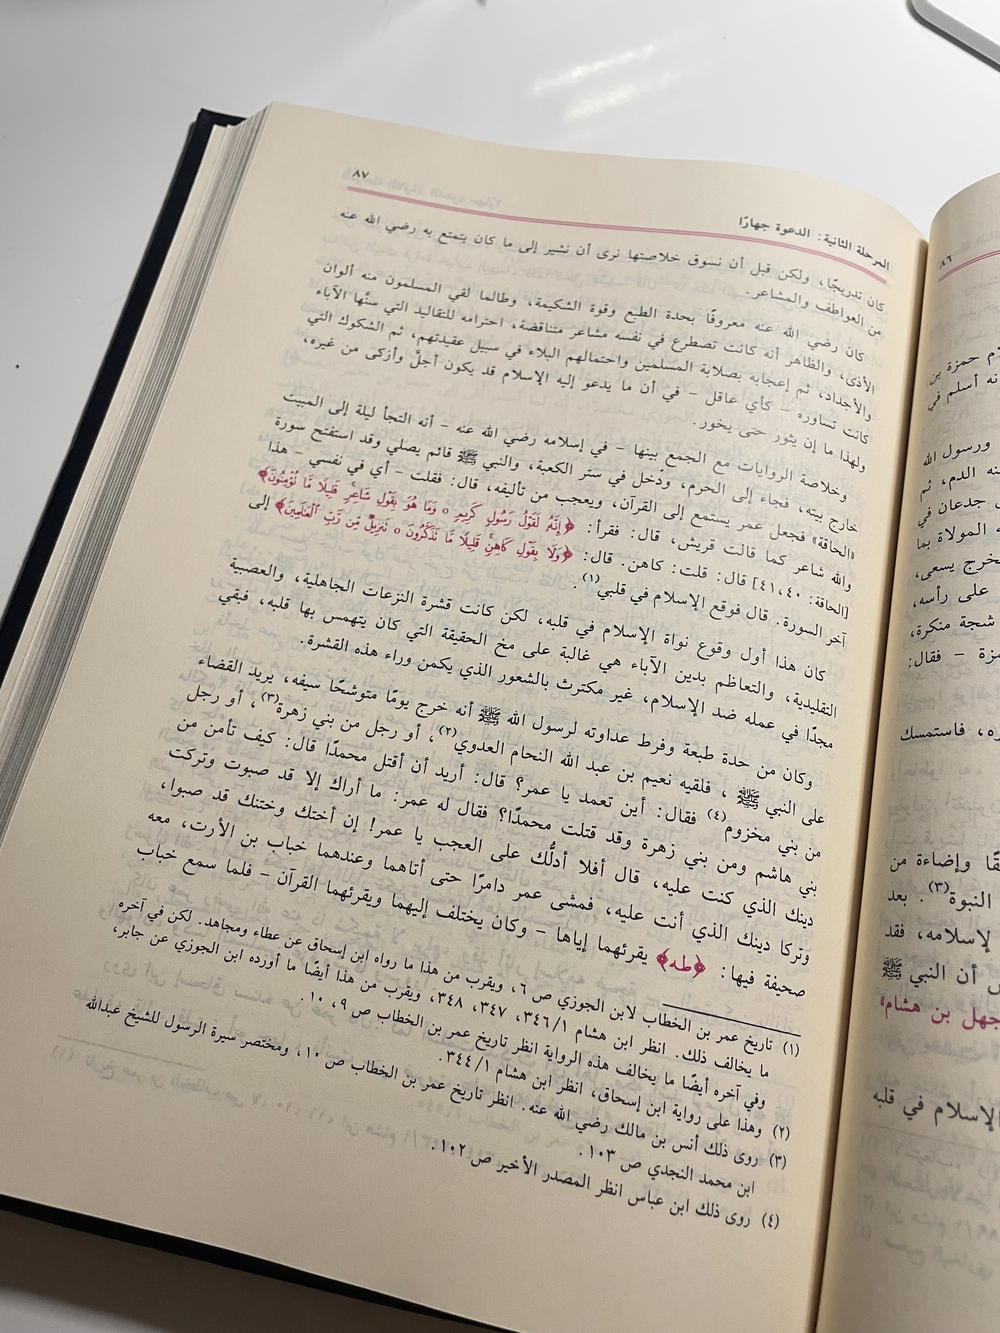 المرحلة الثانية: الدعوة جهارًا
٨٧
كان تدريجًا، ولكن قبل أن نسوق خلاصتها نرى أن نشير إلى ما كان يتمتع به رضي الله عنه
من العواطف والمشاعر.
كان رضي الله عنه معروفًا بحدة الطبع وقوة الشكيمة، وطالما لقي المسلمون منه ألوان
الأذى، والظاهر أنه كانت تصطرع في نفسه مشاعر متناقضة، احترامه للتقاليد التي سنَّها الآباء
والأجداد، ثم إعجابه بصلابة المسلمين واحتمالهم البلاء في سبيل عقيدتهم، ثم الشكوك التي
كانت تساوره – كأي عاقل – في أن ما يدعو إليه الإسلام قد يكون أجلَّ وأزكى من غيره،
ولهذا ما إن يثور حتى يخور.
وخلاصة الروايات مع الجمع بينها – في إسلامه رضي الله عنه – أنه التجأ ليلة إلى المبيت
خارج بيته، فجاء إلى الحرم، ودخل في ستر الكعبة، والنبي ﷺ قائم يصلي وقد استفتح سورة
«الحاقة» فجعل عمر يستمع إلى القرآن، ويعجب من تأليفه، قال: فقلت – أي في نفسي – هذا
والله شاعر كما قالت قريش، قال: فقرأ: ﴿إِنَّهُ لَقَوْلُ رَسُولٍ كَرِيمٍ ○ وَمَا هُوَ بِقَوْلِ شَاعِرٍ قَلِيلًا مَا تُؤْمِنُونَ﴾
[الحاقة: ٤٠، ٤١] قال: قلت: كاهن. قال: ﴿وَلَا بِقَوْلِ كَاهِنٍ قَلِيلًا مَا تَذَكَّرُونَ ○ تَنزِيلٌ مِّن رَّبِّ الْعَالَمِينَ﴾ إلى
آخر السورة. قال فوقع الإسلام في قلبي(١).
كان هذا أول وقوع نواة الإسلام في قلبه، لكن كانت قشرة النزعات الجاهلية، والعصبية
التقليدية، والتعاظم بدين الآباء هي غالبة على مخ الحقيقة التي كان يتهمس بها قلبه، فبقي
مجدًا في عمله ضد الإسلام، غير مكترث بالشعور الذي يكمن وراء هذه القشرة.
وكان من حدة طبعه وفرط عداوته لرسول الله ﷺ أنه خرج يومًا متوشحًا سيفه، يريد القضاء
على النبي ﷺ، فلقيه نعيم بن عبد الله النحام العدوي(٢)، أو رجل من بني زهرة(٣)، أو رجل
من بني مخزوم(٤) فقال: أين تعمد يا عمر؟ قال: أريد أن أقتل محمدًا قال: كيف تأمن من
بني هاشم ومن بني زهرة وقد قتلت محمدًا؟ فقال له عمر: ما أراك إلا قد صبوت وتركت
دينك الذي كنت عليه، قال أفلا أدلُّك على العجب يا عمر! إن أختك وختنك قد صبوا،
وتركا دينك الذي أنت عليه، فمشى عمر دامرًا حتى أتاهما وعندهما خباب بن الأرت، معه
صحيفة فيها: ﴿طه﴾ يقرئهما إياها – وكان يختلف إليهما ويقرئهما القرآن – فلما سمع خباب
(١) تاريخ عمر بن الخطاب لابن الجوزي ص ٦، ويقرب من هذا ما رواه ابن إسحاق عن عطاء ومجاهد. لكن في آخره
ما يخالف ذلك. انظر ابن هشام ٣٤٦/١، ٣٤٧، ٣٤٨، ويقرب من هذا أيضًا ما أورده ابن الجوزي عن جابر،
وفي آخره أيضًا ما يخالف هذه الرواية انظر تاريخ عمر بن الخطاب ص ٩، ١٠.
(٢) وهذا على رواية ابن إسحاق، انظر ابن هشام ٣٤٤/١.
(٣) روى ذلك أنس بن مالك رضي الله عنه. انظر تاريخ عمر بن الخطاب ص ١٠، ومختصر سيرة الرسول للشيخ عبدالله
ابن محمد النجدي ص ١٠٣.
(٤) روى ذلك ابن عباس انظر المصدر الأخير ص ١٠٢.
٨٦
حمزة بن
أسلم في
ورسول الله
الدم، ثم
جدعان في
المولاة بما
يسعى،
على رأسه،
شجة منكرة،
– فقال:
فاستمسك
وإضاءة من
النبوة(٣). بعد
لإسلامه، فقد
أن النبي ﷺ
جهل بن هشام"
الإسلام في قلبه